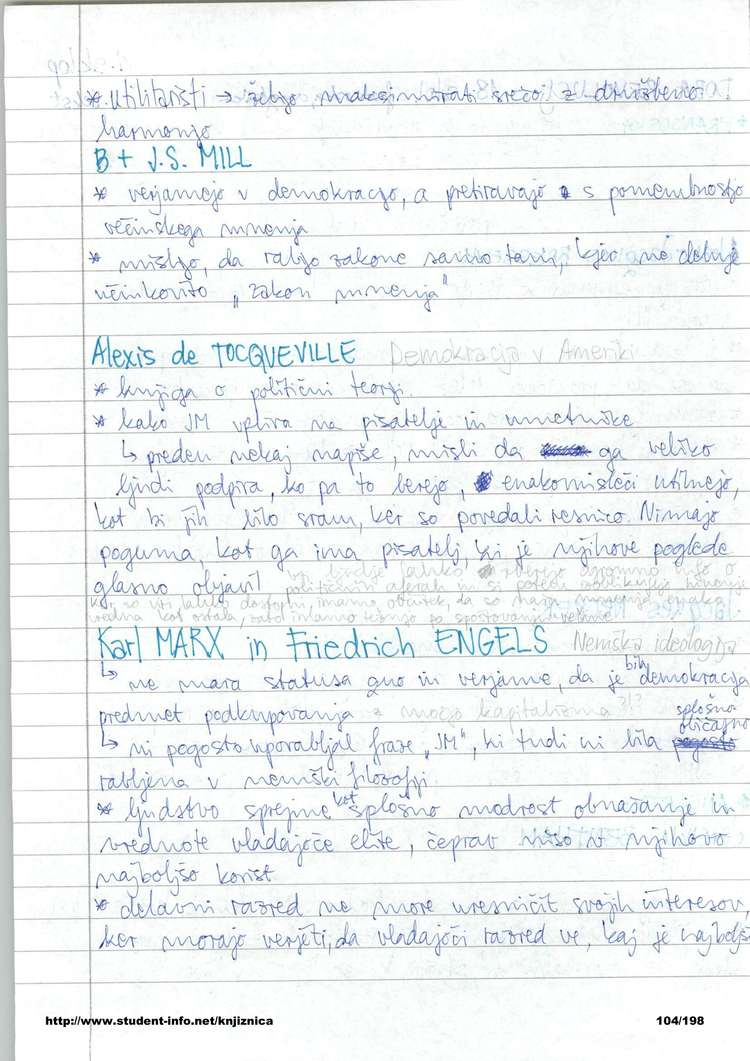 * Utilitaristi → želijo maksimirati srečo z družbeno
harmonijo
B + J.S. MILL
* verjamejo v demokracijo, a pretiravajo s pomembnostjo
večinskega mnenja
* mislijo, da rabijo zakone samo tam, kjer ne deluje
učinkovito "zakon mnenja"
Alexis de TOCQUEVILLE Demokracija v Ameriki
* knjiga o politični teoriji.
* kako JM vpliva na pisatelje in umetnike
↳ preden nekaj napiše, misli da ga veliko
ljudi podpira, ko pa to berejo, enakomisleči utihnejo,
kot bi jih bilo sram, ker so povedali resnico. Nimajo
poguma, kot ga ima pisatelj, ki je njihove poglede
glasno objavil
ljudje lahko zberejo ogromno info o
političnih aferah in si potem oblikujejo mnenje
Ker so vsi lahko dostopni, imamo občutek, da so naša mnenja enako
vredna kot ostala, zato imamo težnjo po spoštovanju večine
Karl MARX in Friedrich ENGELS Nemška ideologija
↳ ne mara statusa quo in verjame, da je bila demokracija
predmet podkupovanja z močjo kapitalizma ?!?
↳ ni pogosto uporabljal fraze "JM", ki tudi ni bila splošno običajno
rabljena v nemški filozofiji
* ljudstvo sprejme kot splošno modrost obnašanje in
vrednote vladajoče elite, čeprav niso v njihovo
najboljšo korist
* delavni razred ne more uresničit svojih interesov,
ker morajo verjeti, da vladajoči razred ve, kaj je najboljš
http://www.student-info.net/knjiznica
104/198